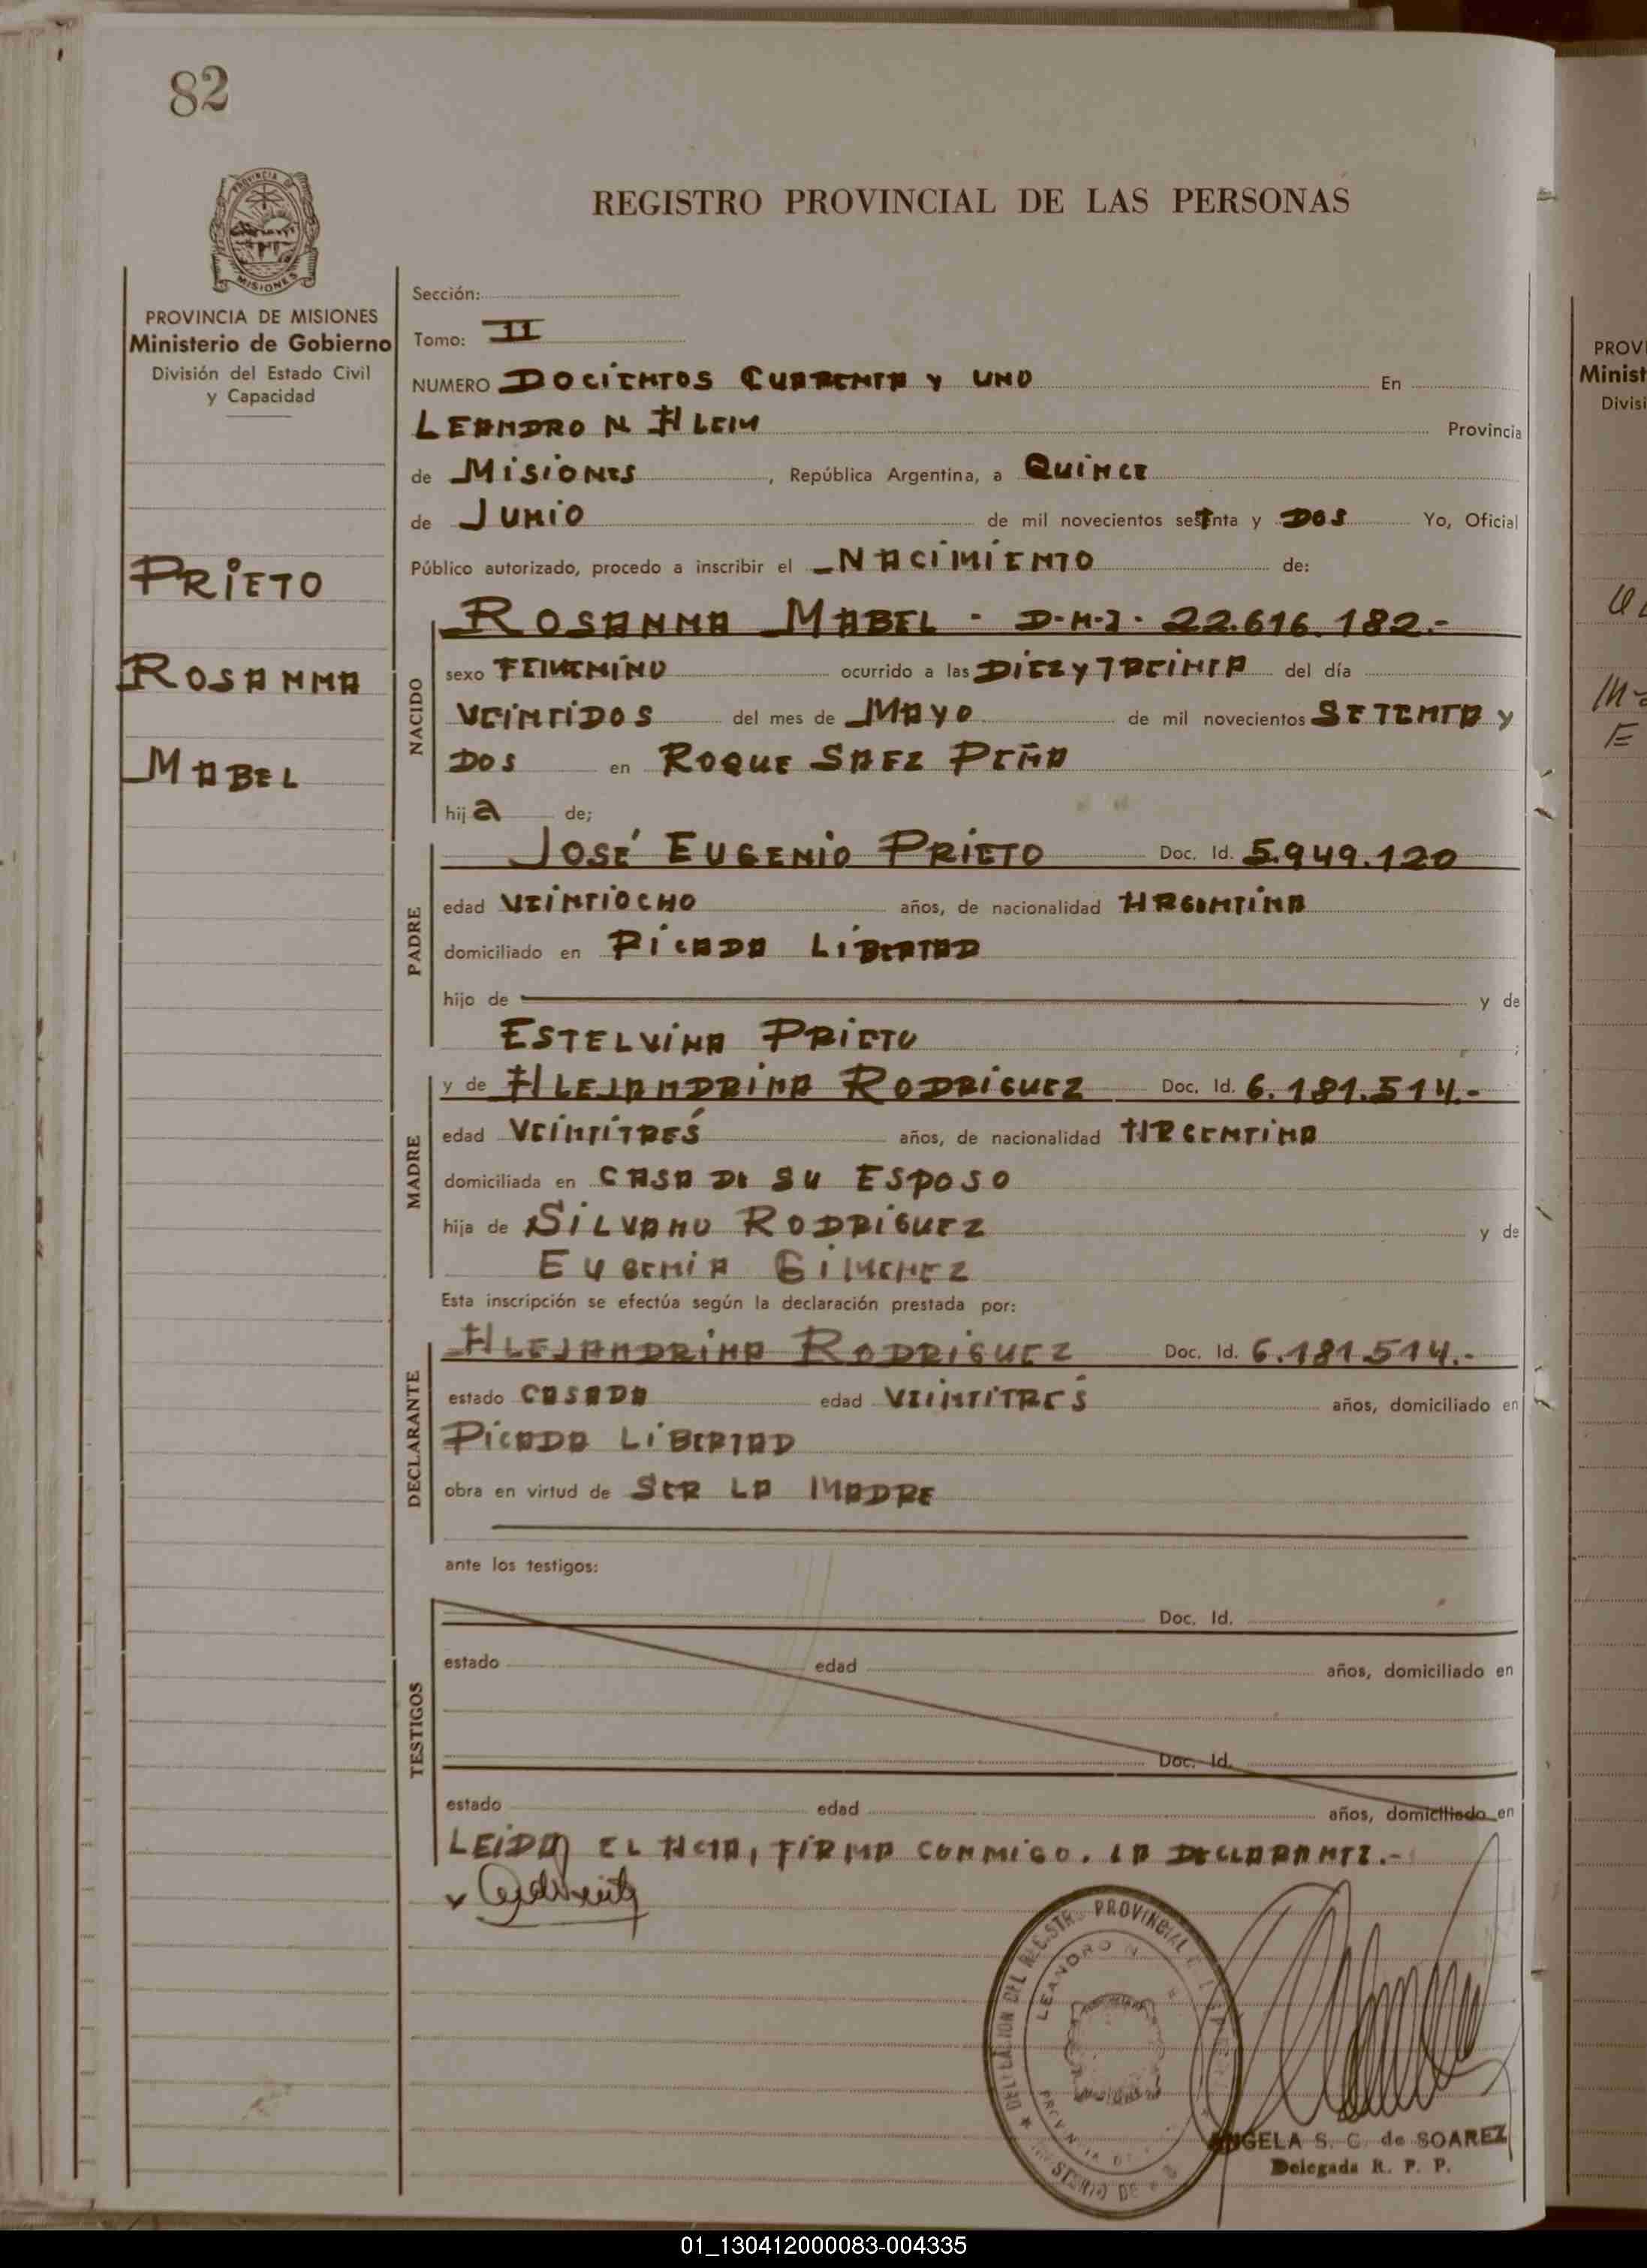 82
PROVINCIA DE
MISIONES
REGISTRO PROVINCIAL DE LAS PERSONAS
PROVINCIA DE MISIONES
Ministerio de Gobierno
División del Estado Civil
y Capacidad
PRIETO
ROSANNA
MABEL
Sección:
Tomo: II
NUMERO DOCIENTOS CUARENTA Y UNO En
LEANDRO N ALEM Provincia
de MISIONES, República Argentina, a QUINCE
de JUNIO de mil novecientos setenta y DOS Yo, Oficial
Público autorizado, procedo a inscribir el NACIMIENTO de:
NACIDO
ROSANNA MABEL - D.N.I. 22.616.182.-
sexo FEMENINO ocurrido a las DIEZ Y TREINTA del día
VEINTIDOS del mes de MAYO de mil novecientos SETENTA Y
DOS en ROQUE SAEZ PEÑA
hija de;
PADRE
JOSÉ EUGENIO PRIETO Doc. Id. 5.949.120
edad VEINTIOCHO años, de nacionalidad ARGENTINA
domiciliado en PICADA LIBERTAD
hijo de y de
ESTELVINA PRIETO ;
MADRE
y de ALEJANDRINA RODRIGUEZ Doc. Id. 6.181.514.-
edad VEINTITRÉS años, de nacionalidad ARGENTINA
domiciliada en CASA DE SU ESPOSO
hija de SILVANO RODRIGUEZ y de
EUGENIA GIMENEZ
Esta inscripción se efectúa según la declaración prestada por:
DECLARANTE
ALEJANDRINA RODRIGUEZ Doc. Id. 6.181.514.-
estado CASADA edad VEINTITRÉS años, domiciliado en
PICADA LIBERTAD
obra en virtud de SER LA MADRE
ante los testigos:
TESTIGOS
Doc. Id.
estado edad años, domiciliado en
Doc. Id.
estado edad años, domiciliado en
LEIDA EL ACTA, FIRMA CONMIGO. LA DECLARANTE.-
DEL REGISTRO PROVINCIAL
LEANDRO N
ANGELA S. C. de SOAREZ
Delegada R. P. P.
PROVI
Minist
Divisi
01_130412000083-004335